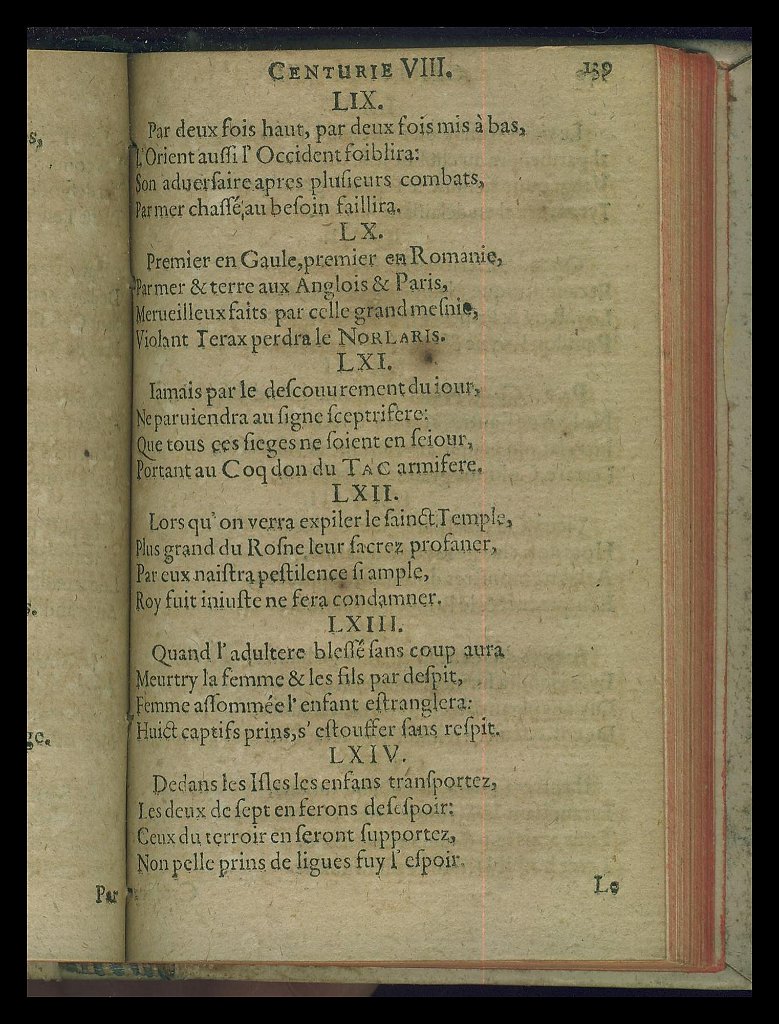 s,
s.
ge.
Par
CENTURIE VIII. 159
LIX.
Par deux fois haut, par deux fois mis à bas,
L'Orient auſſi l' Occident foiblira:
Son aduerſaire apres pluſieurs combats,
Par mer chaſſé, au beſoin faillira.
LX.
Premier en Gaule, premier en Romanie,
Par mer & terre aux Anglois & Paris,
Merueilleux faits par celle grand meſnie,
Violant Terax perdra le NORLARIS.
LXI.
Iamais par le deſcouurement du iour,
Ne paruiendra au ſigne ſceptrifere:
Que tous ces ſieges ne ſoient en ſeiour,
Portant au Coq don du TAG armifere.
LXII.
Lors qu' on verra expiler le ſainct Temple,
Plus grand du Roſne leur ſacrez profaner,
Par eux naiſtra peſtilence ſi ample,
Roy fuit iniuſte ne fera condamner.
LXIII.
Quand l' adultere bleſſé ſans coup aura
Meurtry la femme & les fils par deſpit,
Femme aſſommée l' enfant eſtranglera:
Huict captifs prins, s' eſtouffer ſans reſpit.
LXIV.
Dedans les Iſles les enfans tranſportez,
Les deux de ſept en ferons deſeſpoir:
Ceux du terroir en ſeront ſupportez,
Non pelle prins de ligues fuy l' eſpoir.
Le